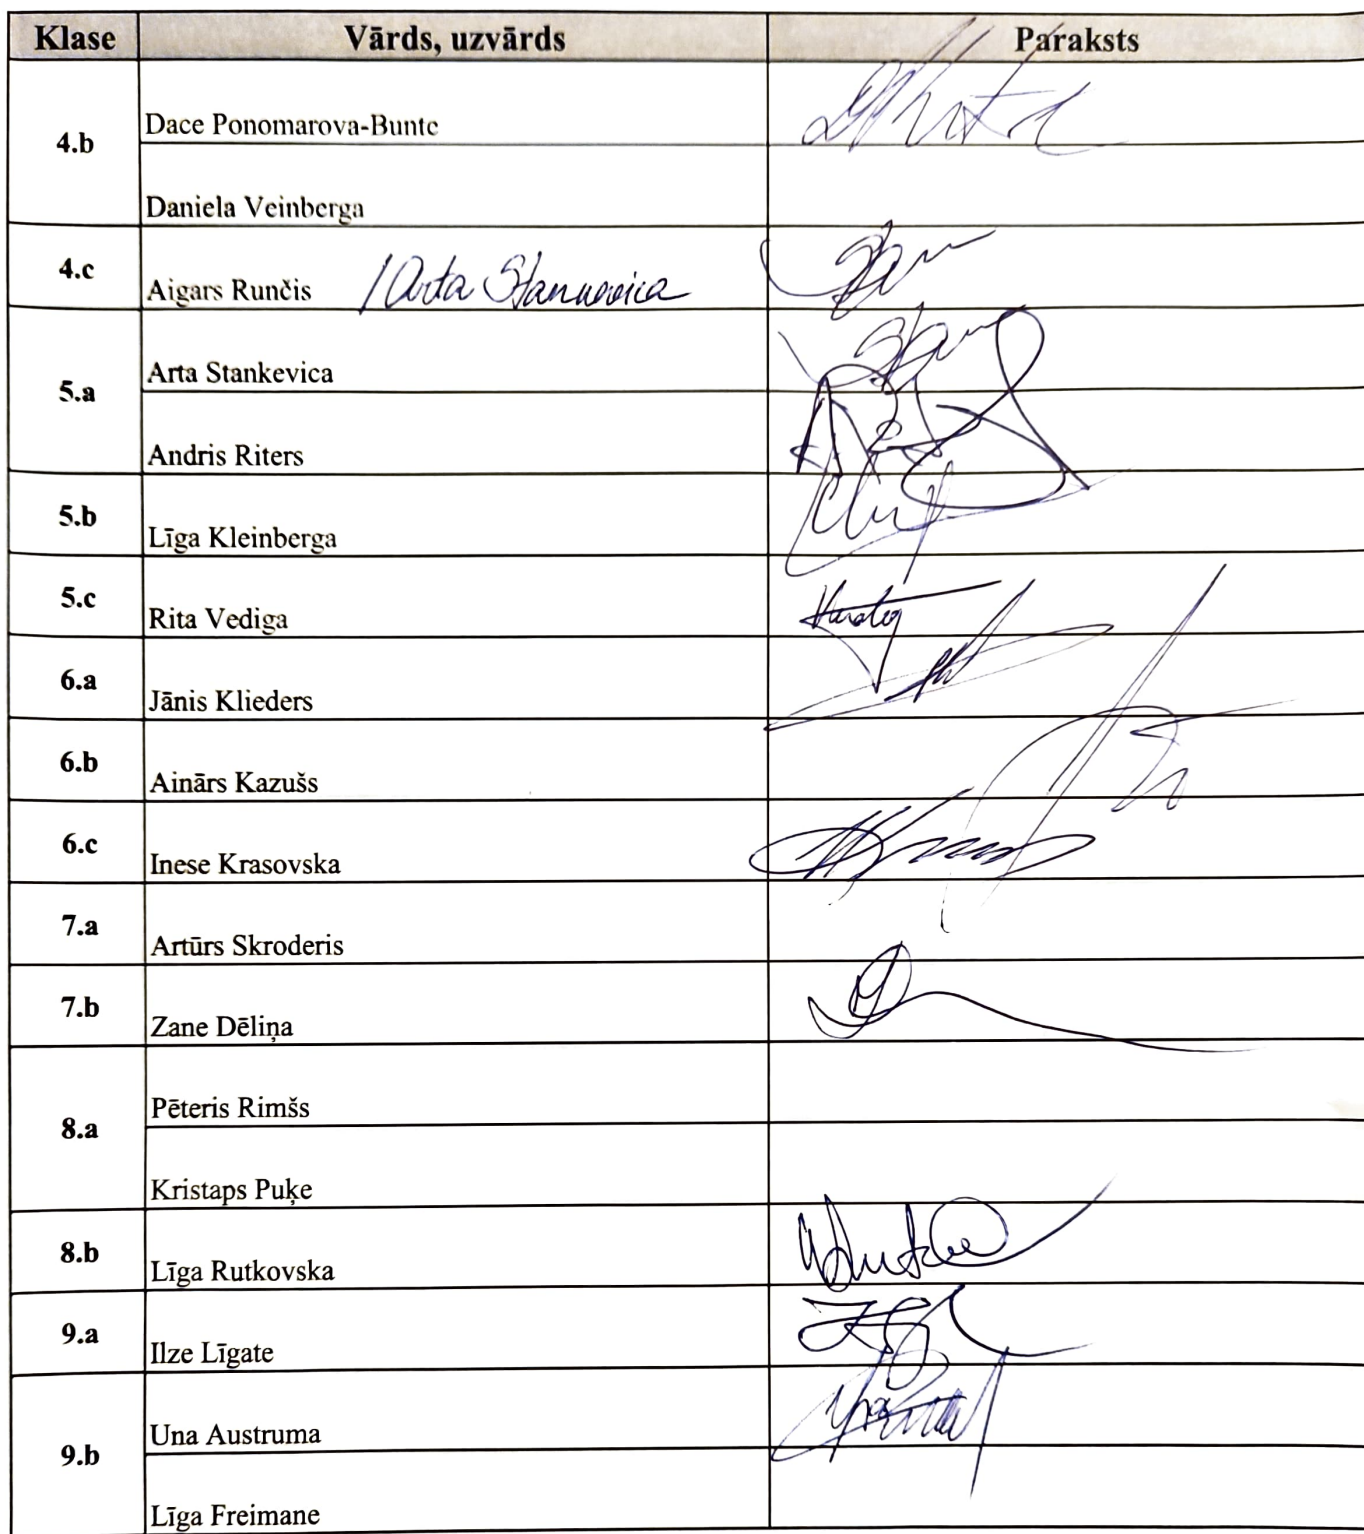 Klase Vārds, uzvārds Paraksts
4.b Dace Ponomarova-Bunte
Daniela Veinberga
4.c Aigars Runčis / Arta Stankevica
5.a Arta Stankevica
Andris Riters
5.b Līga Kleinberga
5.c Rita Vediga
6.a Jānis Klieders
6.b Ainārs Kazušs
6.c Inese Krasovska
7.a Artūrs Skroderis
7.b Zane Dēliņa
8.a Pēteris Rimšs
Kristaps Puķe
8.b Līga Rutkovska
9.a Ilze Līgate
9.b Una Austruma
Līga Freimane